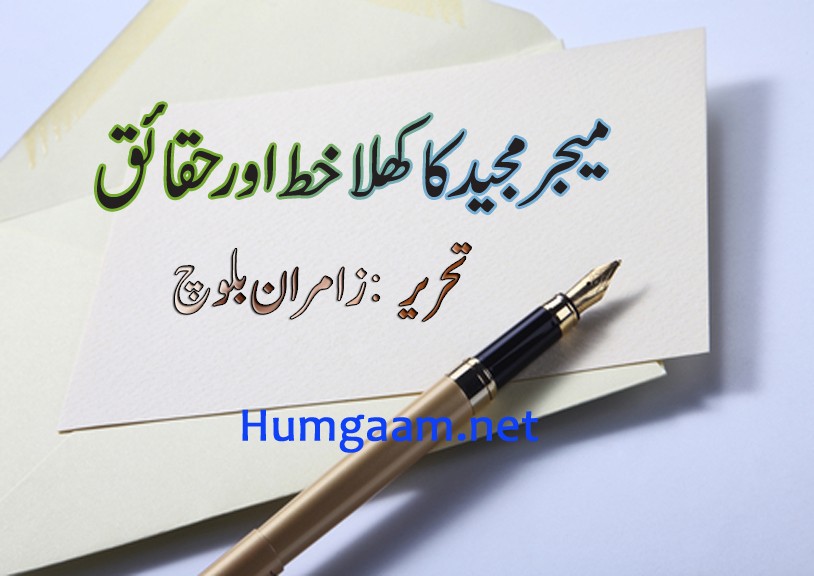 میجر مجید کا کھلا خط اور حقائق
تحریر : زامران بلوچ
Humgaam.net